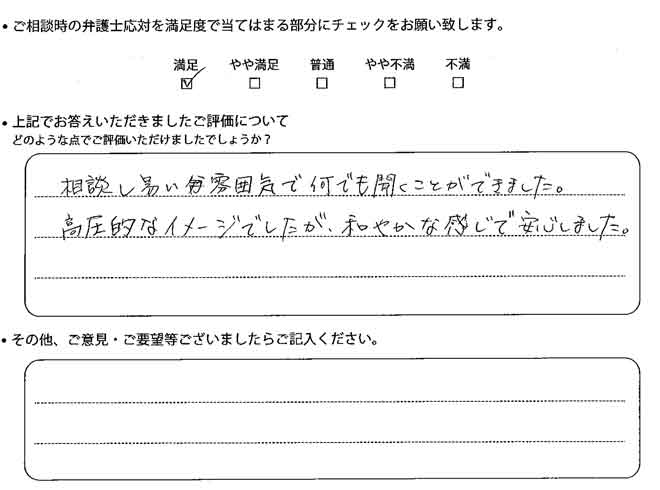 ・ご相談時の弁護士応対を満足度で当てはまる部分にチェックをお願い致します。
満足 やや満足 普通 やや不満 不満
☑ □ □ □ □
・上記でお答えいただきましたご評価について
どのような点でご評価いただけましたでしょうか？
相談し易い雰囲気で何でも聞くことができました。
高圧的なイメージでしたが、和やかな感じで安心しました。
・その他、ご意見・ご要望等ございましたらご記入ください。